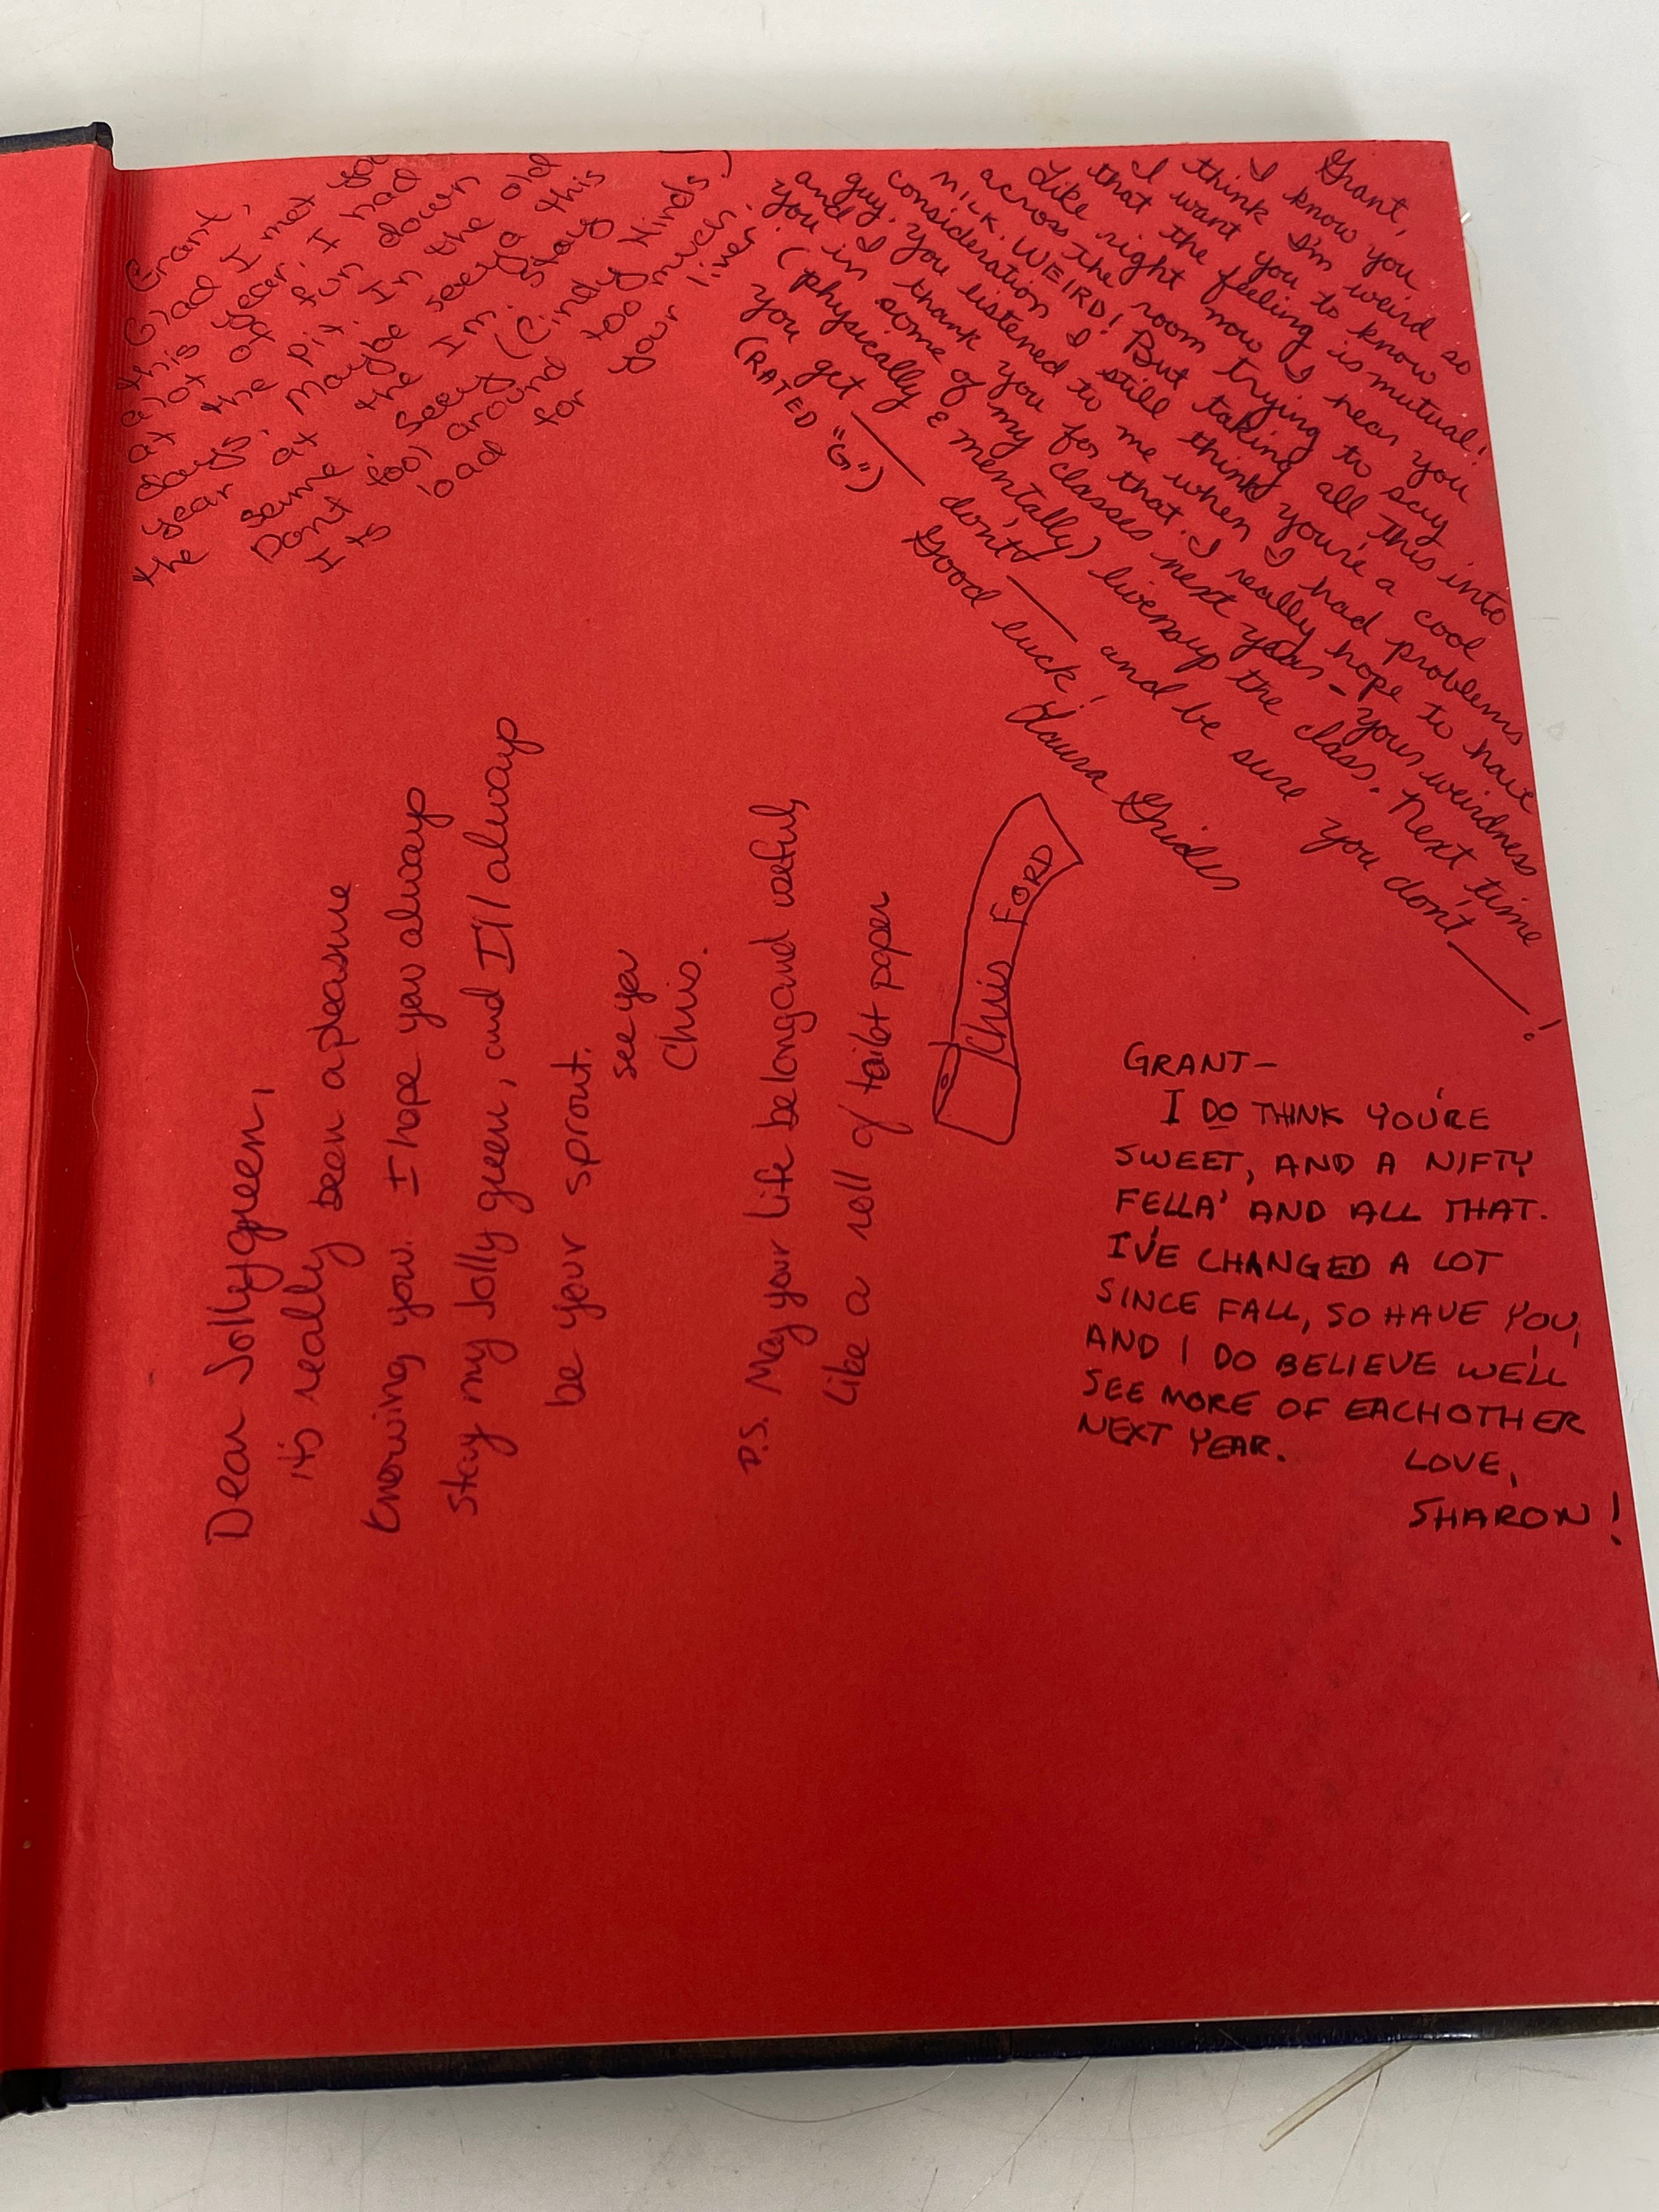 Grant,
Glad I met you
this year. I had
alot of fun down
at the pit. In the old
days, maybe seeya this
year at the Im. stay
the same. Seey (Cindy Hinds)
Dont fool around too much.
Its bad for your liver.
Grant,
I know you
think I'm weird so
I want you to know
that the feeling is mutual!
Like right now I hear you
across the room trying to say
MILK. WEIRD! But taking all this into
consideration I still think you're a cool
guy. You listened to me when I had problems
and I thank you for that. I really hope to have
you in some of my classes next year - your weirdness
(physically & mentally) livensup the class. Next time
you get ___ don't ___ and be sure you don't ___!
(RATED "G")
Good luck!
Laura Grider
Dear Jollygreen,
it's really been a pleasure
knowing you. I hope you always
stay my Jolly green, and I'll always
be your sprout.
see ya
Chris.
P.S. May your life be long and useful,
like a roll of toilet paper
Chris FORD
GRANT-
I DO THINK YOU'RE
SWEET, AND A NIFTY
FELLA' AND ALL THAT.
I'VE CHANGED A LOT
SINCE FALL, SO HAVE YOU,
AND I DO BELIEVE WE'LL
SEE MORE OF EACHOTHER
NEXT YEAR.
LOVE,
SHARON!